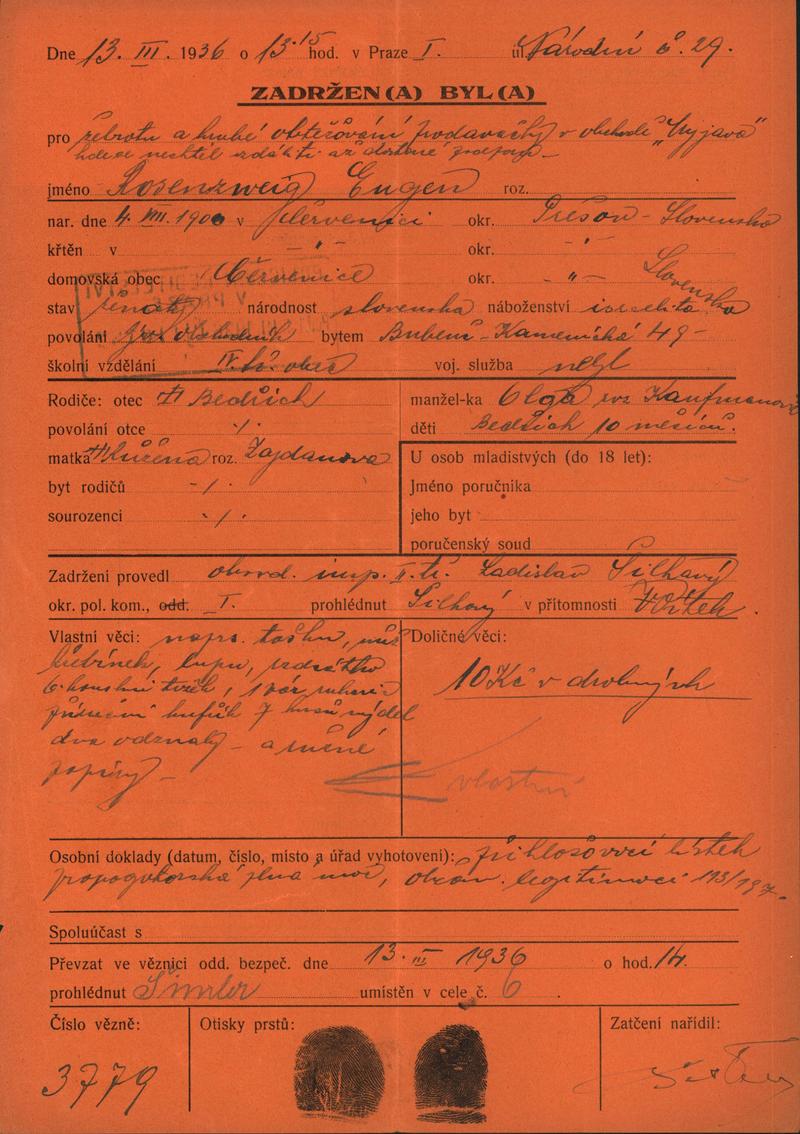 Dne 13. III. 1936 o 13.15 hod. v Praze I. ul. Národní č. 29.
ZADRŽEN(A) BYL(A)
pro žebrotu a hrubé obtěžování prodavačky v obchodě "Vyjava"
kde se nechtěl vzdáliti až dostane
jméno Rosenzweig Eugen roz.
nar. dne 4. VIII. 1900 v Červenici okr. Prešov - Slovensko
křtěn v - " - okr. - " -
domovská obec Červenice okr. - " - Slovensko
stav ženatý národnost slovenská náboženství israelita
povolání obchodník bytem Bubeneč - Kamenická 49 -
školní vzdělání IV. tř. obec voj. služba nebyl
Rodiče: otec † Bedřich
povolání otce -/-
matka † Růžena roz. Zajdanova
byt rodičů -/-
sourozenci -/-
manžel-ka Olga roz. Kaufmanova
děti Bedřich 10 měsíců.
U osob mladistvých (do 18 let):
Jméno poručníka
jeho byt
poručenský soud
Zadržení provedl obvod. insp. II. tř. Ladislav Šilhavý
okr. pol. kom., odd. I. prohlédnut Šilhavý v přítomnosti
Vlastní věci: tašku, nůž
hřebínek, lupu,
7 kusů mýdel
dva odznaky - a různé
papíry -
Doličné věci:
10 Kč v drobných
vlastní
Osobní doklady (datum, číslo, místo a úřad vyhotovení): přihlašovací lístek
plná moc, legitimaci
Spoluúčast s
Převzat ve věznici odd. bezpeč. dne 13. III 1936 o hod. 14.
prohlédnut umístěn v cele č. 6.
Číslo vězně:
3779
Otisky prstů:
Zatčení nařídil: